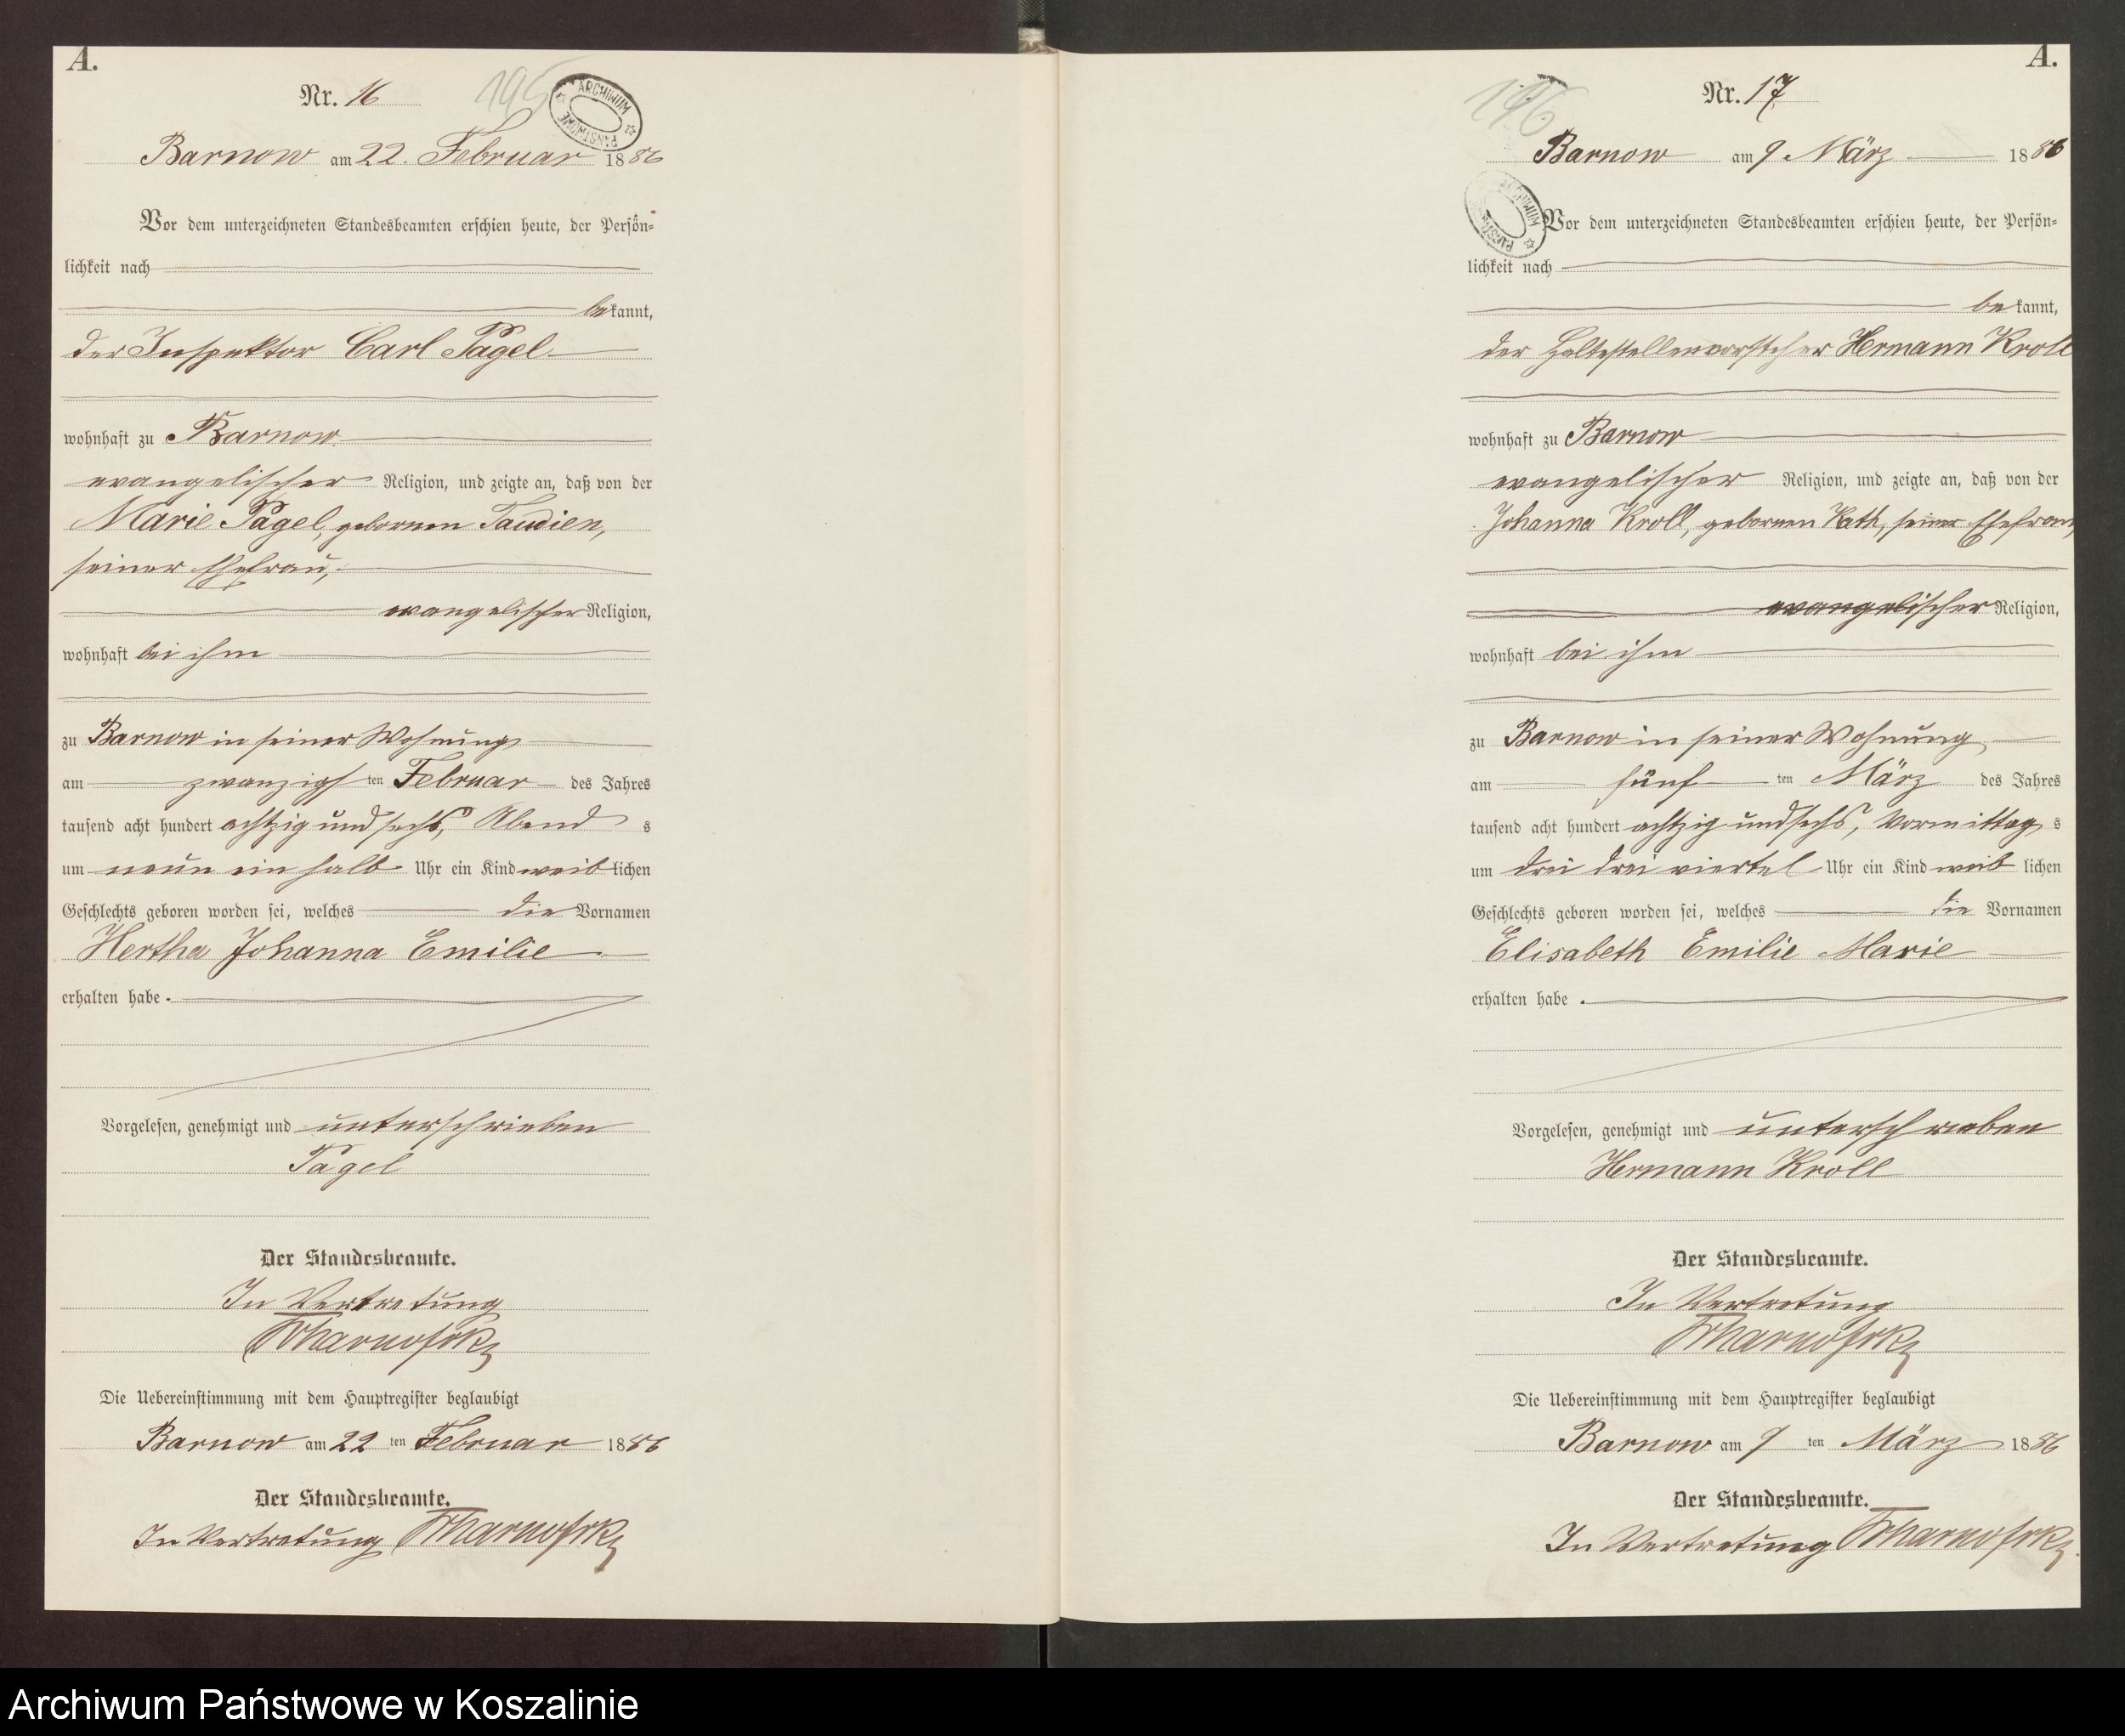 A.
Nr. 16
195
ARCHIWUM PAŃSTWOWE
Barnow am 22. Februar 1886
Vor dem unterzeichneten Standesbeamten erschien heute, der Persön-
lichkeit nach
bekannt,
der Inspektor Carl Pagel
wohnhaft zu Barnow
evangelischer Religion, und zeigte an, daß von der
Marie Pagel, gebornen Taudien,
seiner Ehefrau,
evangelischer Religion,
wohnhaft bei ihm
zu Barnow in seiner Wohnung
am zwanzigsten Februar des Jahres
tausend acht hundert achtzig und sechs, Abends
um neun ein halb Uhr ein Kind weiblichen
Geschlechts geboren worden sei, welches die Vornamen
Hertha Johanna Emilie
erhalten habe.
Vorgelesen, genehmigt und unterschrieben
Pagel
Der Standesbeamte.
In Vertretung
Die Uebereinstimmung mit dem Hauptregister beglaubigt
Barnow am 22 ten Februar 1886
Der Standesbeamte.
In Vertretung
A.
Nr. 17
196
ARCHIWUM PAŃSTWOWE
Barnow am 9 März 1886
Vor dem unterzeichneten Standesbeamten erschien heute, der Persön-
lichkeit nach
bekannt,
der Haltestellenvorsteher Hermann Kroll
wohnhaft zu Barnow
evangelischer Religion, und zeigte an, daß von der
Johanna Kroll, gebornen Kath, seiner Ehefrau,
evangelischer Religion,
wohnhaft bei ihm
zu Barnow in seiner Wohnung
am fünften März des Jahres
tausend acht hundert achtzig und sechs, Vormittags
um drei drei viertel Uhr ein Kind weiblichen
Geschlechts geboren worden sei, welches die Vornamen
Elisabeth Emilie Marie
erhalten habe.
Vorgelesen, genehmigt und unterschrieben
Hermann Kroll
Der Standesbeamte.
In Vertretung
Die Uebereinstimmung mit dem Hauptregister beglaubigt
Barnow am 9 ten März 1886
Der Standesbeamte.
In Vertretung
Archiwum Państwowe w Koszalinie